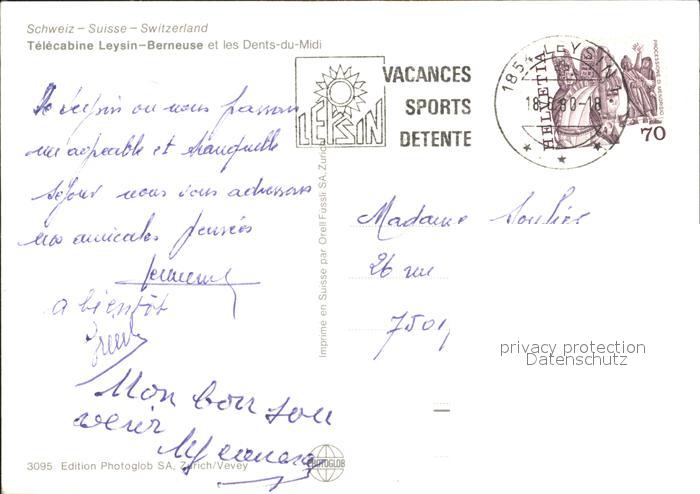 Schweiz – Suisse – Switzerland
Télécabine Leysin–Berneuse et les Dents-du-Midi
VACANCES
SPORTS
DETENTE
LEYSIN
1854 LEYSIN 1
18.6.80-18
HELVETIA
PROCESSIONE DI MENDRISIO
70
De Leysin ou nous passons
un agréable et tranquille
séjour nous vous adressons
nos amicales pensées
a bientôt
Mon bon sou
venir
Madame Soulier
26 rue
7501
privacy protection
Datenschutz
Imprimé en Suisse par Orell Füssli SA, Zurich
3095 Edition Photoglob SA, Zürich/Vevey
PHOTOGLOB